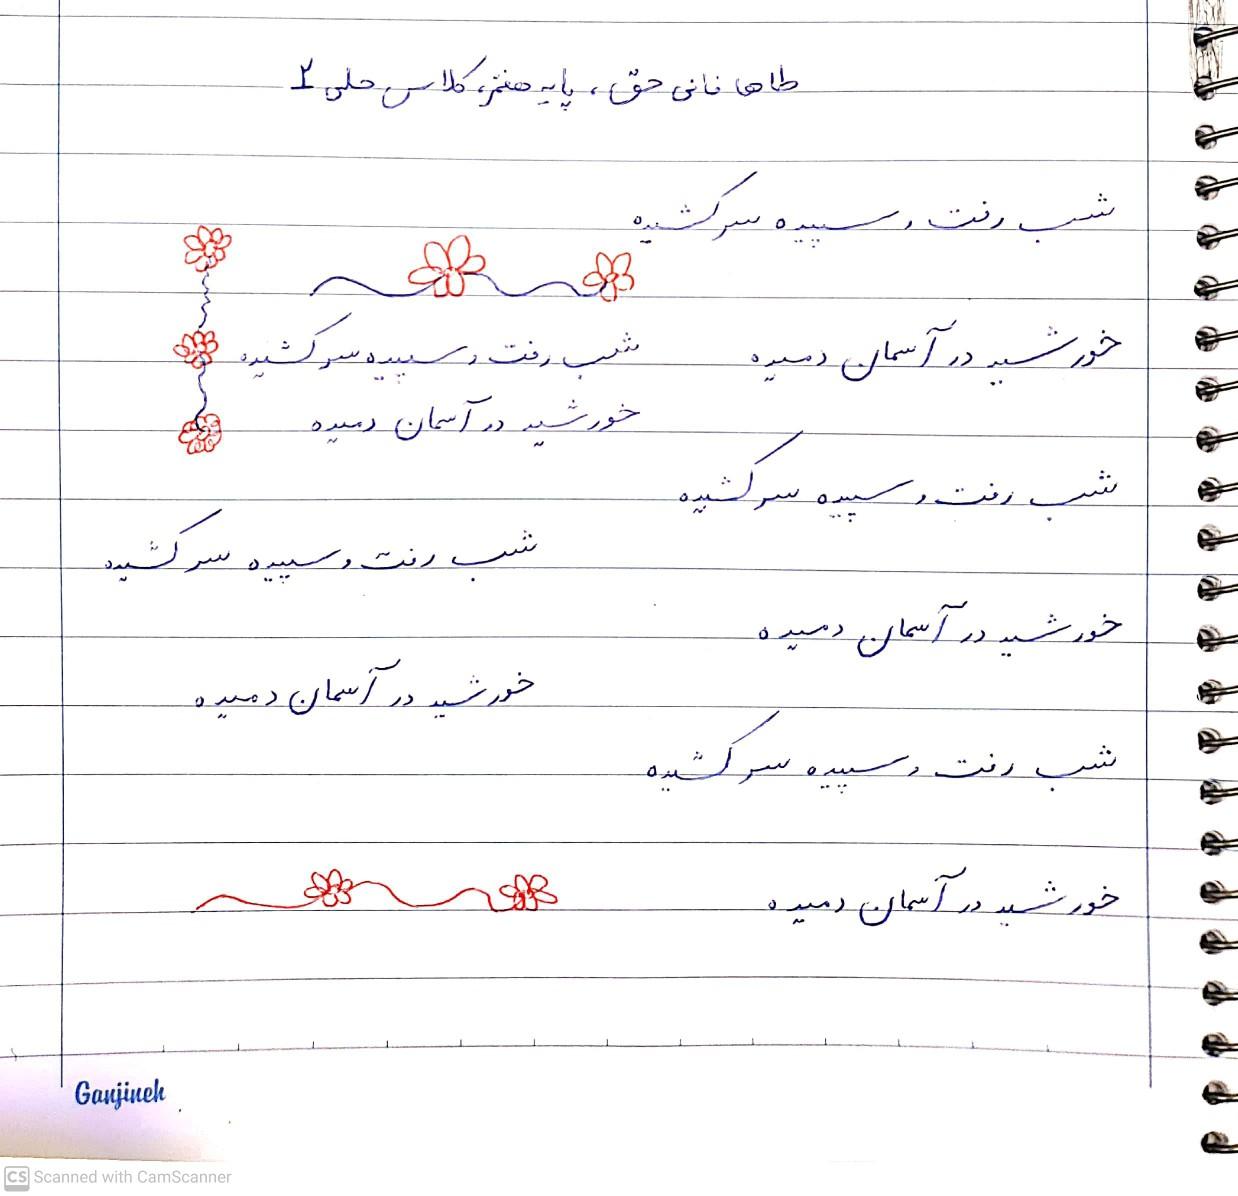 طاها فانی حق، پایه هفتم، کلاس حلی ۲
شب رفت و سپیده سر کشیده
خورشید در آسمان دمیده
شب رفت و سپیده سر کشیده
خورشید در آسمان دمیده
شب رفت و سپیده سر کشیده
شب رفت و سپیده سر کشیده
خورشید در آسمان دمیده
خورشید در آسمان دمیده
شب رفت و سپیده سر کشیده
خورشید در آسمان دمیده
Ganjineh
CS Scanned with CamScanner